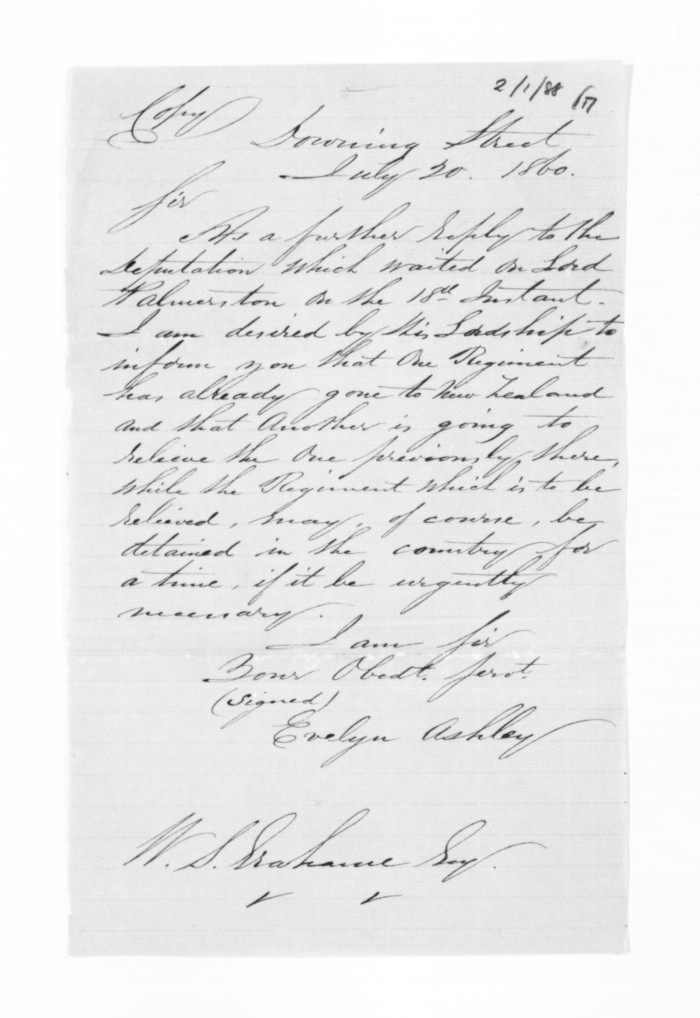 2/1/88 /17
Copy
Downing Street
July 20. 1860.
Sir
As a further reply to the
Deputation which waited on Lord
Palmerston on the 18th Instant.
I am desired by His Lordship to
inform you that One Regiment
has already gone to New Zealand
and that Another is going to
relieve the One previously there,
while the Regiment which is to be
relieved, may, of course, be
detained in the country for
a time, if it be urgently
necessary.
I am Sir
Your Obedt. Servt.
(Signed)
Evelyn Ashley
W. S. Grahame Esq.